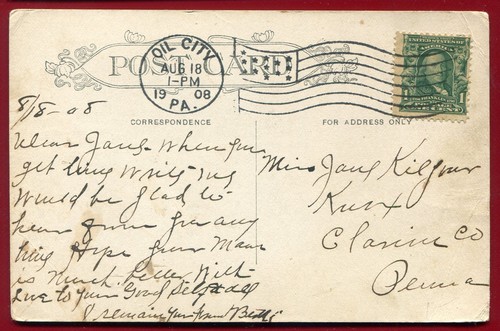 POST CARD
OIL CITY
AUG 18
1-PM
1908
PA.
UNITED STATES OF AMERICA
1
CORRESPONDENCE
FOR ADDRESS ONLY
8/18-08
Dear Jany When you
get time write
would be glad to
hear from you any
time Hope your Maw
is much better With
Love to your Good Self & all
I remain your friend
Miss Jany Kilgour
Knox
Clarion Co
Penna